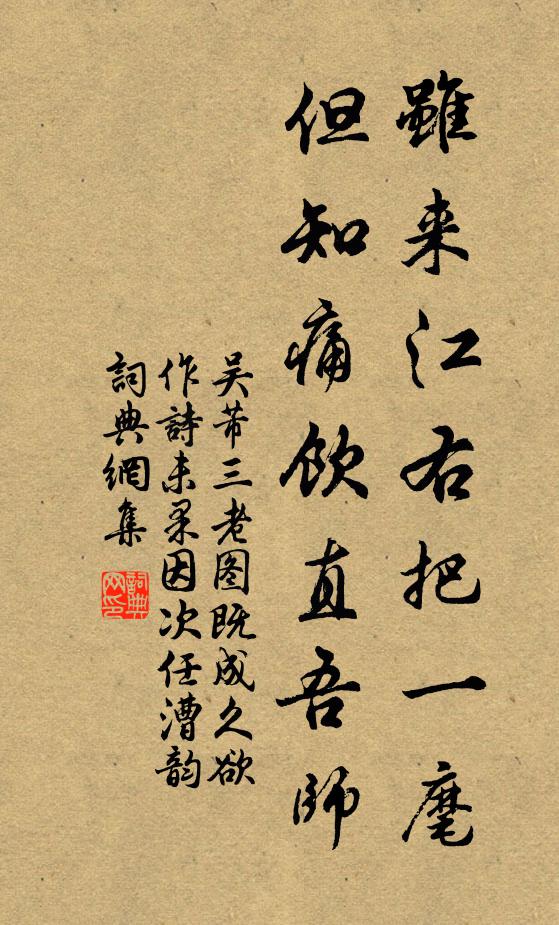 雖来江右把一麾
但知痛飲直吾師
吴芾三老图既成久欲
作詩未果因次任漕韵
詞典網集
詞典网印